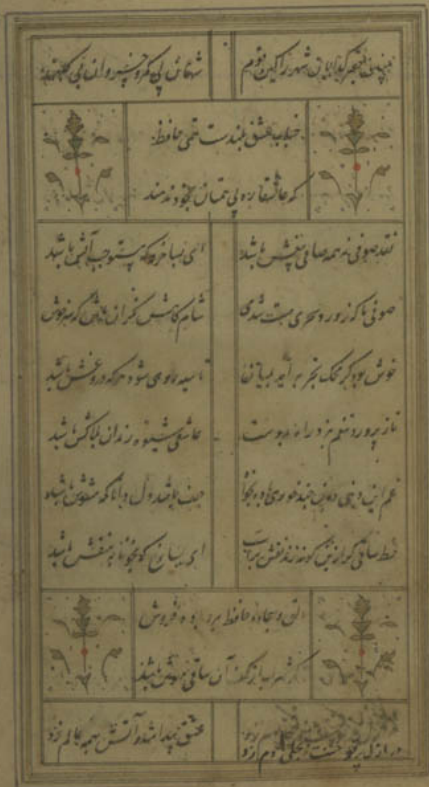 مبین حقیر گدایان شهر را کین قوم شهان بی کمر و خسروان بی کلهند
جناب عشق بلندست همتی حافظ
که عاشقان ره بی همتان بخود ندهند
نقد صوفی نه همه صافی بیغش باشد ای بسا خرقه که مستوجب آتش باشد
صوفی ما که ز ورد سحری مست شدی شامگاهش نگران باش که سرخوش
خوش بود گر محک تجربه آید بمیان تا سیه روی شود هر که دروغش باشد
ناز پرورد تنعم نبرد راه بدوست عاشقی شیوه رندان بلاکش باشد
غم این دنیی دون چند خوری باده بخور حیف باشد دل دانا که مشوش باشد
خط ساقی گر ازین گونه زند نقش بر آب ای بسا رخ که بخونابه منقش باشد
دلق و سجاده حافظ ببرد باده فروش
گر شراب از کف آن ساقی مهوش باشد
در ازل پرتو حسنت ز تجلی دم زد عشق پیدا شد و آتش بهمه عالم زد